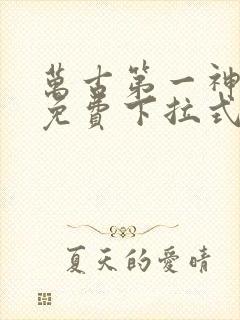 萬古第一神
免費下拉式
夏天的愛晴